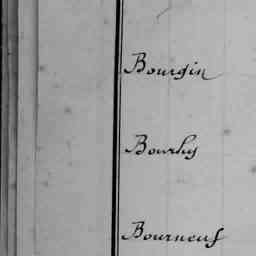 Bourgin
Bourhy
Bourneuf